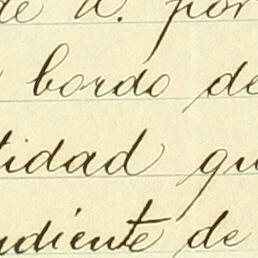 de N. por
bordo de
tidad qu
ndiente de